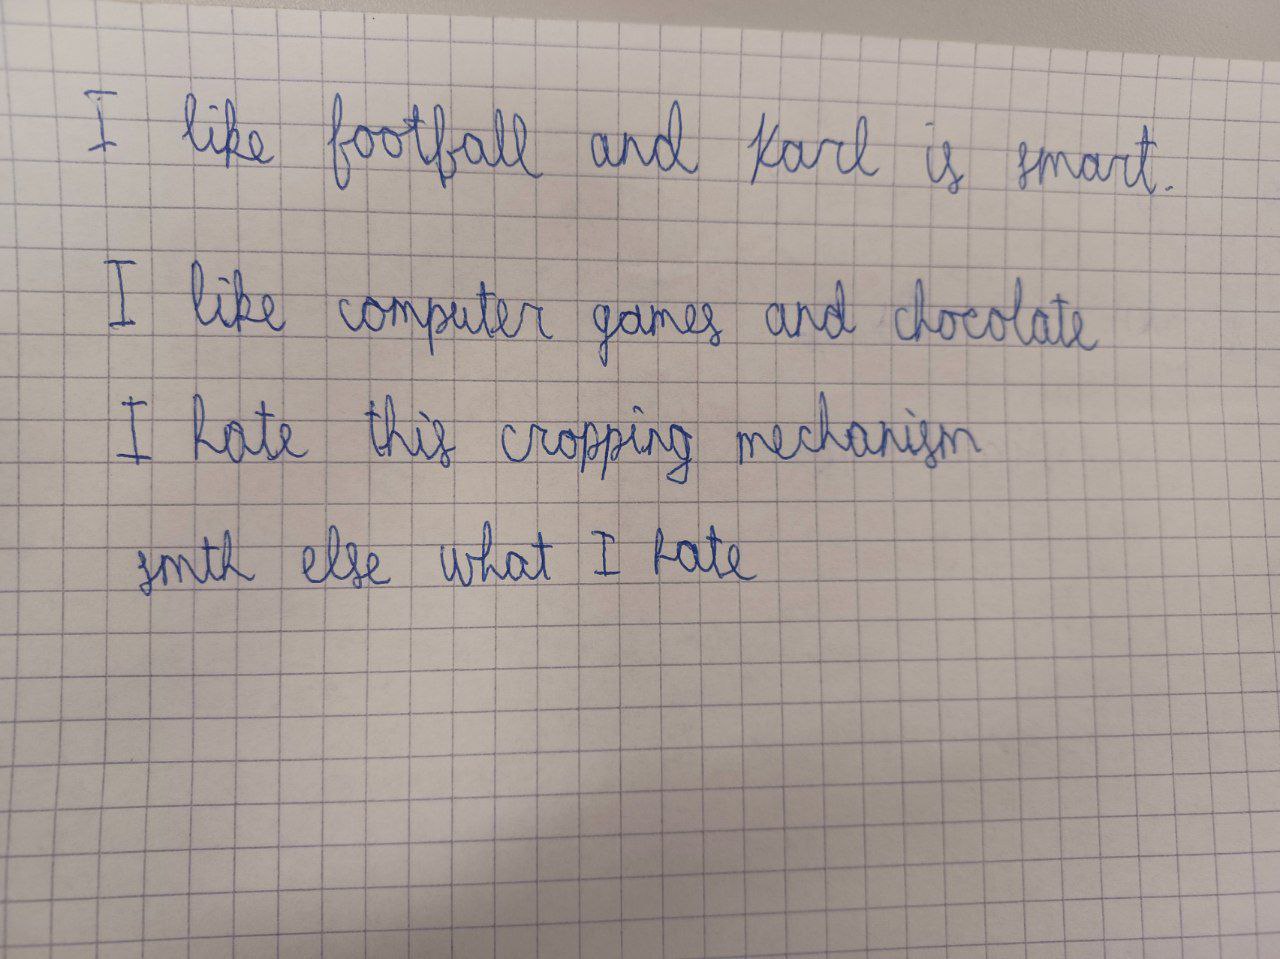 I like football and Karl is smart.
I like computer games and chocolate
I hate this cropping mechanism
smth else what I hate